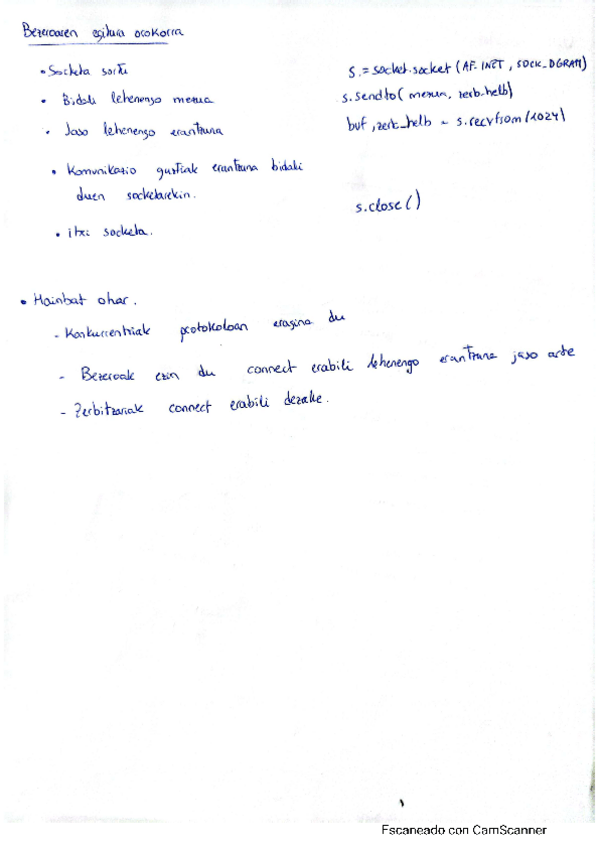 Bezeroaren egitura orokorra
• Socketa sortu s.=socket.socket(AF_INET, SOCK_DGRAM)
• Bidali lehenengo mezua s.sendto(mezua, zerb_helb)
• Jaso lehenengo erantzuna buf, zerb_helb = s.recvfrom(1024)
• Komunikazio guztiak erantzuna bidali
duen socketarekin.
s.close()
• itxi socketa.
• Hainbat ohar.
- Konkurrentziak protokoloan eragina du
- Bezeroak ezin du connect erabili lehenengo erantzuna jaso arte
- Zerbitzariak connect erabili dezake.
Escaneado con CamScanner